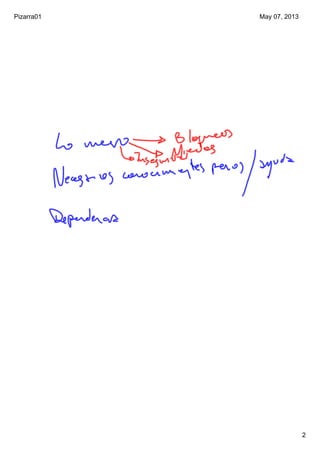 Pizarra01 May 07, 2013
Lo nuevo Bloqueos
Miedos
Inseguridad
Necesarios conocimientos previos / ayuda
Dependencia
2